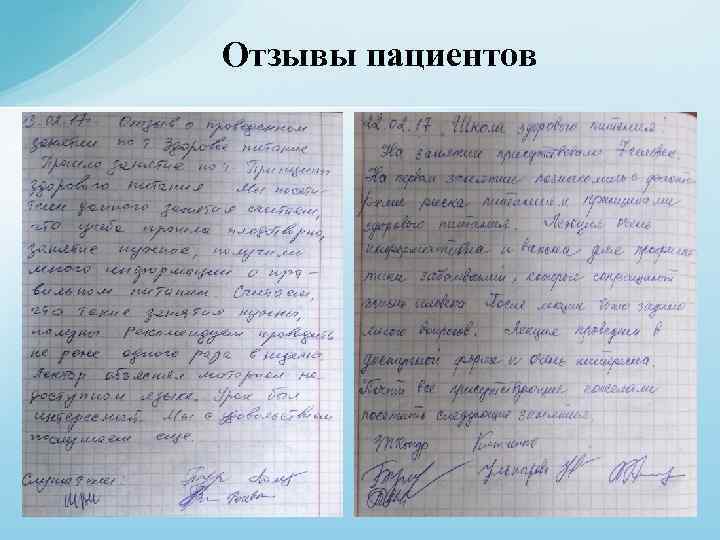 Отзывы пациентов
13.02.17г. Отзыв о проведенном
занятии по т. Здоровое питание
Прошло занятие по т. Принципы
здорового питания Мы посети-
тели данного занятия считаем,
что учеба прошла плодотворно,
занятие нужное, получили
много информации о пра-
вильном питании. Считаем,
что такие занятия нужны,
полезны Рекомендуем проводить
не реже одного раза в
Лектор объяснял материал
доступном языке. Урок был
интересным. Мы с удовольствием
послушаем еще.
Слушатели:
22.02.17 Школа здорового питания!
На занятии присутствовали 7 человек.
На первом занятии познакомились с
риска питания и принципами
здорового питания. Лекция очень
информативна и важна для профилак
тики заболеваний, которые сокращают
жизнь человека После лекции было задано
много вопросов. Лекция проведена в
доступной форме и очень интересна.
Почти все присутствующие пожелали
посетить следующие занятия.